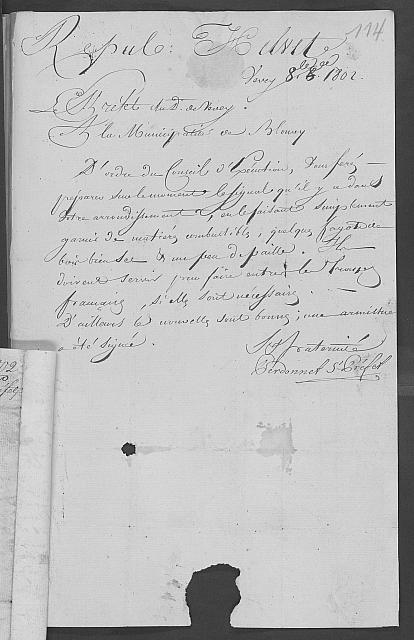 114
Repub: Helvet:
Vevey 8 8bre 1802
Le Préfet du D. de Vevey
A la Municipalité de Blonay
D'ordre du Conseil d'Exécution, Vous ferez
préparer sur le moment le signal qu'il y a dans
votre arrondissement, en le faisant simplement
garnir de matières combustibles, quelques fagots de
bois bien sec & un peu de paille. Ils
doivent servir pour faire entrer les Troupes
françaises, si elles sont nécessaires.
D'ailleurs les nouvelles sont bonnes; une armistice
a été signé.
Sal & fraternité
Perdonnet S. Préfet